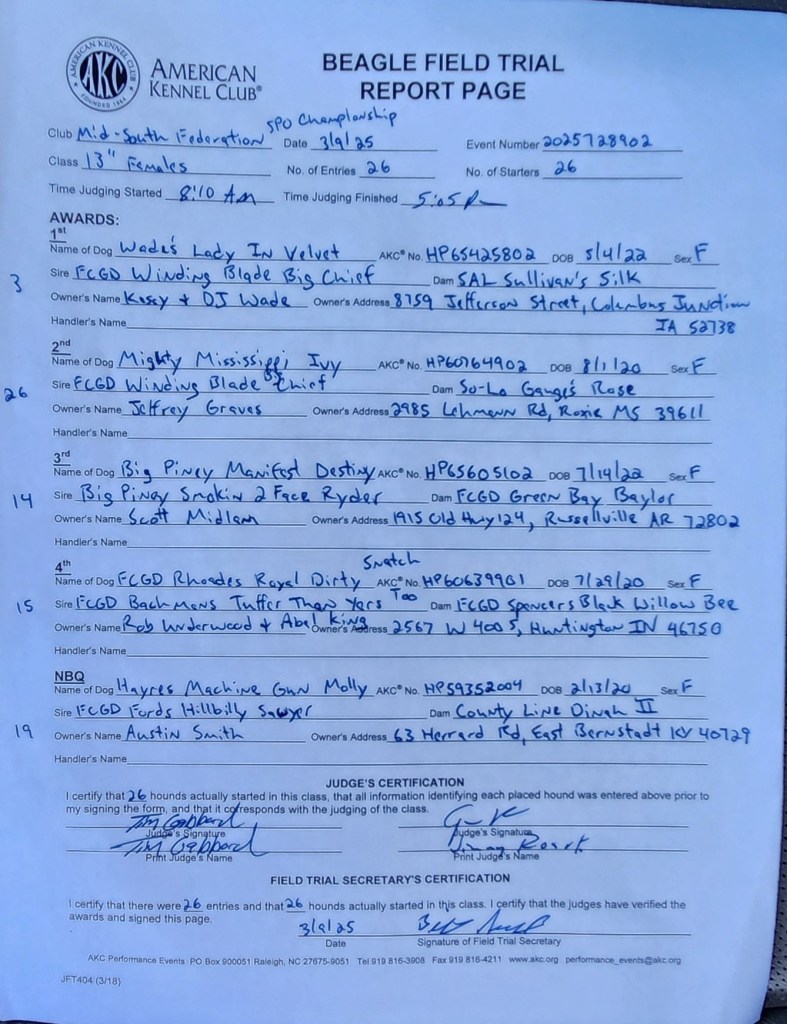 AMERICAN KENNEL CLUB
AKC
FOUNDED 1884
AMERICAN
KENNEL CLUB®
BEAGLE FIELD TRIAL
REPORT PAGE
SPO Championship
Club Mid-South Federation Date 3/9/25 Event Number 2025728902
Class 13" Females No. of Entries 26 No. of Starters 26
Time Judging Started 8:10 Am Time Judging Finished 5:05 P
AWARDS:
1st
Name of Dog Wade's Lady In Velvet AKC® No. HP65425802 DOB 5/4/22 Sex F
3 Sire FCGD Winding Blade Big Chief Dam SAL Sullivan's Silk
Owner's Name Kasey + DJ Wade Owner's Address 8759 Jefferson Street, Columbus Junction
Handler's Name IA 52738
2nd
Name of Dog Mighty Mississippi Ivy AKC® No. HP60764902 DOB 8/1/20 Sex F
26 Sire FCGD Winding Blade Big Chief Dam So-Lo Gauge's Rose
Owner's Name Jeffrey Graves Owner's Address 2985 Lehmann Rd, Roxie MS 39611
Handler's Name
3rd
Name of Dog Big Piney Manifest Destiny AKC® No. HP65605102 DOB 7/14/22 Sex F
14 Sire Big Piney Smokin 2 Face Ryder Dam FCGD Green Bay Baylor
Owner's Name Scott Midlam Owner's Address 1915 Old Hwy 124, Russellville AR 72802
Handler's Name
4th Snatch
Name of Dog FCGD Rhoades Royal Dirty AKC® No. HP60639901 DOB 7/29/20 Sex F
15 Sire FCGD Bachmans Tuffer Than Yars Too Dam FCGD Spencers Black Willow Bee
Owner's Name Rob Underwood + Abel King Owner's Address 2567 W 400 S, Huntington IN 46750
Handler's Name
NBQ
Name of Dog Hayres Machine Gun Molly AKC® No. HP59352004 DOB 2/13/20 Sex F
Sire FCGD Fords Hillbilly Sawyer Dam County Line Dinah II
19 Owner's Name Austin Smith Owner's Address 63 Herrard Rd, East Bernstadt KY 40729
Handler's Name
JUDGE'S CERTIFICATION
I certify that 26 hounds actually started in this class, that all information identifying each placed hound was entered above prior to
my signing the form, and that it corresponds with the judging of the class.
Tim Gabbard
Judge's Signature Judge's Signature
Tim Gabbard
Print Judge's Name Print Judge's Name
FIELD TRIAL SECRETARY'S CERTIFICATION
I certify that there were 26 entries and that 26 hounds actually started in this class. I certify that the judges have verified the
awards and signed this page.
3/9/25
Date Signature of Field Trial Secretary
AKC Performance Events PO Box 900051 Raleigh, NC 27675-9051 Tel 919 816-3908 Fax 919 816-4211 www.akc.org performance_events@akc.org
JFT404 (3/18)